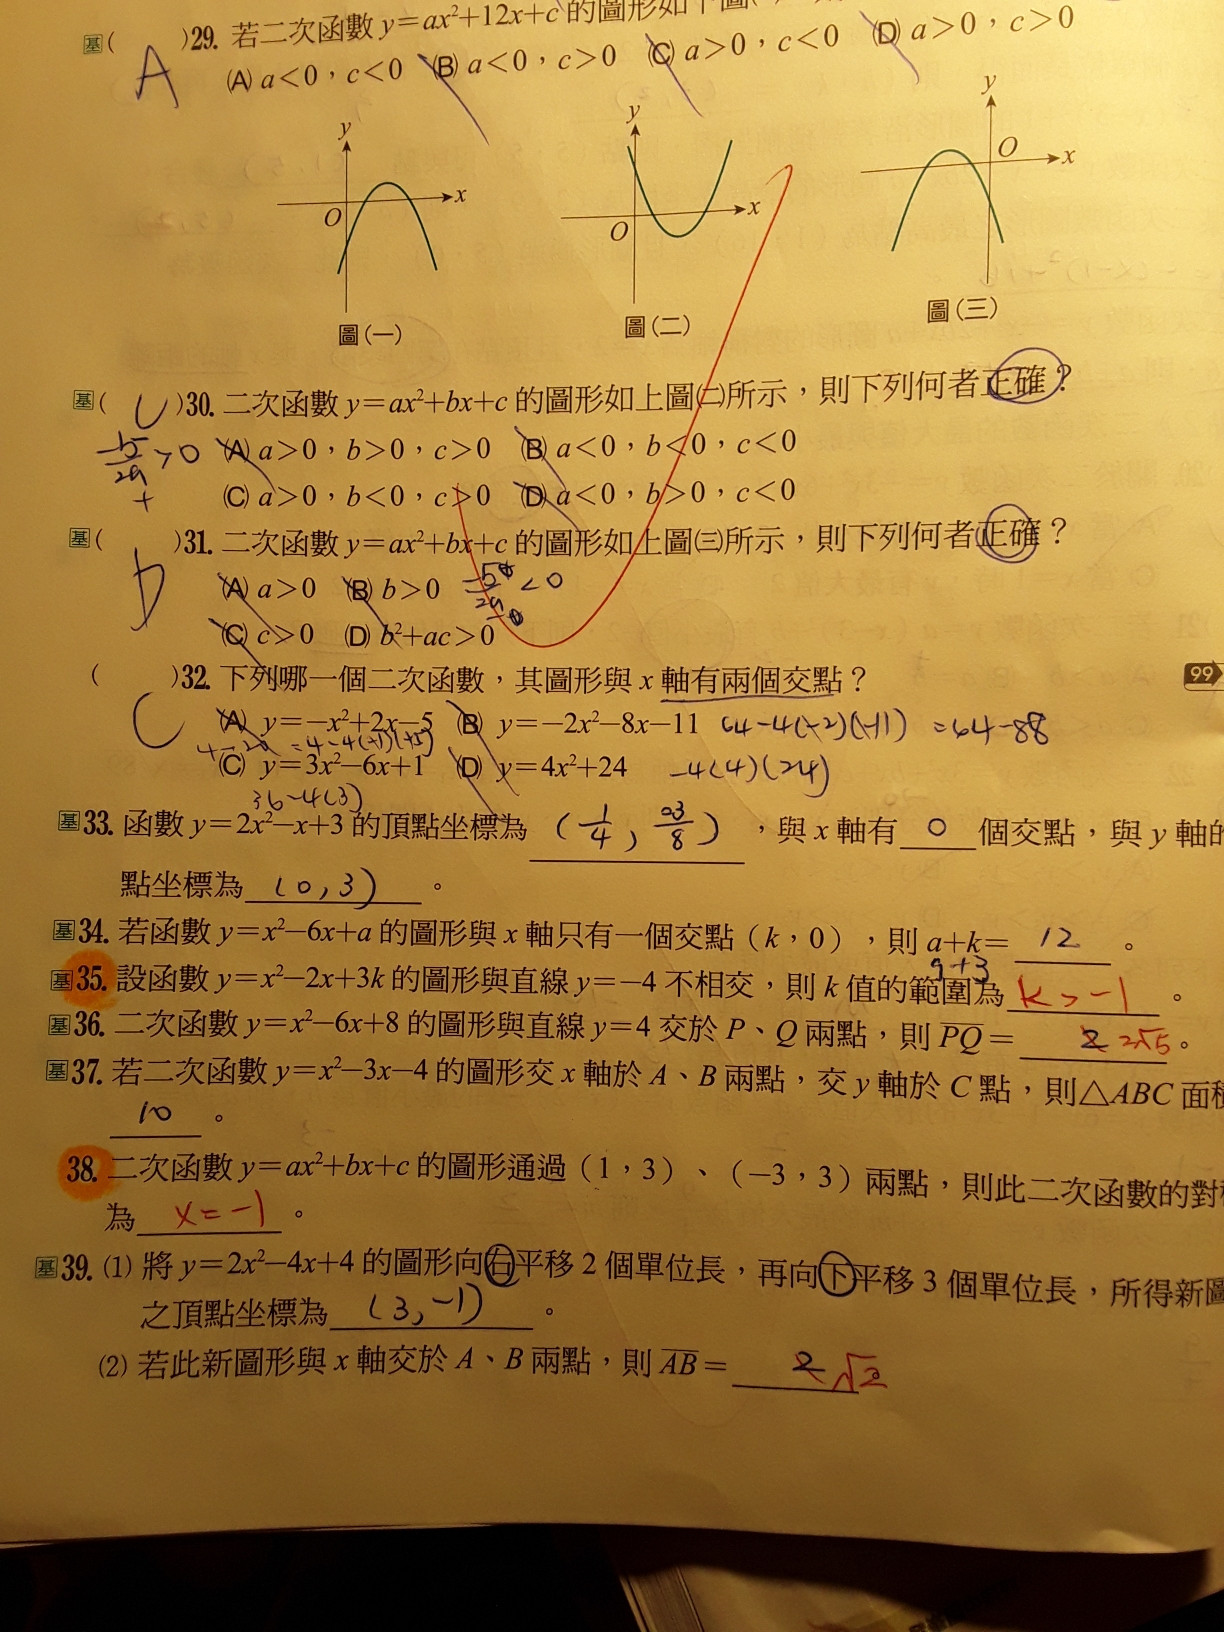 基( A )29. 若二次函數 y=ax²+12x+c 的圖形如下圖
(A) a<0，c<0 (B) a<0，c>0 (C) a>0，c<0 (D) a>0，c>0
y x O 圖(一)
y x O 圖(二)
y x O 圖(三)
基( C )30. 二次函數 y=ax²+bx+c 的圖形如上圖(二)所示，則下列何者正確？
-b/2a >0 (A) a>0，b>0，c>0 (B) a<0，b<0，c<0
+ (C) a>0，b<0，c>0 (D) a<0，b>0，c<0
基( D )31. 二次函數 y=ax²+bx+c 的圖形如上圖(三)所示，則下列何者正確？
(A) a>0 (B) b>0 <0
(C) c>0 (D) b²+ac>0
( C )32. 下列哪一個二次函數，其圖形與 x 軸有兩個交點？
(A) y=-x²+2x-5 (B) y=-2x²-8x-11 64-4(-2)(-11) =64-88
4-20 =4-4(-1)(-5)
(C) y=3x²-6x+1 (D) y=4x²+24 -4(4)(24)
36-4(3)
基33. 函數 y=2x²-x+3 的頂點坐標為 (1/4, 23/8)，與 x 軸有 0 個交點，與 y 軸的
點坐標為 (0,3)。
基34. 若函數 y=x²-6x+a 的圖形與 x 軸只有一個交點（k，0），則 a+k= 12。
9+3
基35. 設函數 y=x²-2x+3k 的圖形與直線 y=-4 不相交，則 k 值的範圍為 k>-1。
基36. 二次函數 y=x²-6x+8 的圖形與直線 y=4 交於 P、Q 兩點，則 PQ= 2 2√5。
基37. 若二次函數 y=x²-3x-4 的圖形交 x 軸於 A、B 兩點，交 y 軸於 C 點，則△ABC 面積
10。
38. 二次函數 y=ax²+bx+c 的圖形通過（1，3）、（-3，3）兩點，則此二次函數的對稱
為 x=-1。
基39. (1) 將 y=2x²-4x+4 的圖形向右平移 2 個單位長，再向下平移 3 個單位長，所得新圖
之頂點坐標為 (3,-1)。
(2) 若此新圖形與 x 軸交於 A、B 兩點，則 AB= 2 √2
99